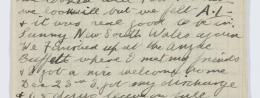 we look well but we felt A.1.
& it was real good to be in
Sunny New South Wales again
We finished up at the Anzac
Buffett where I met my friends
& got a nice welcome home
Dec 23rd I got my discharge
& days on full